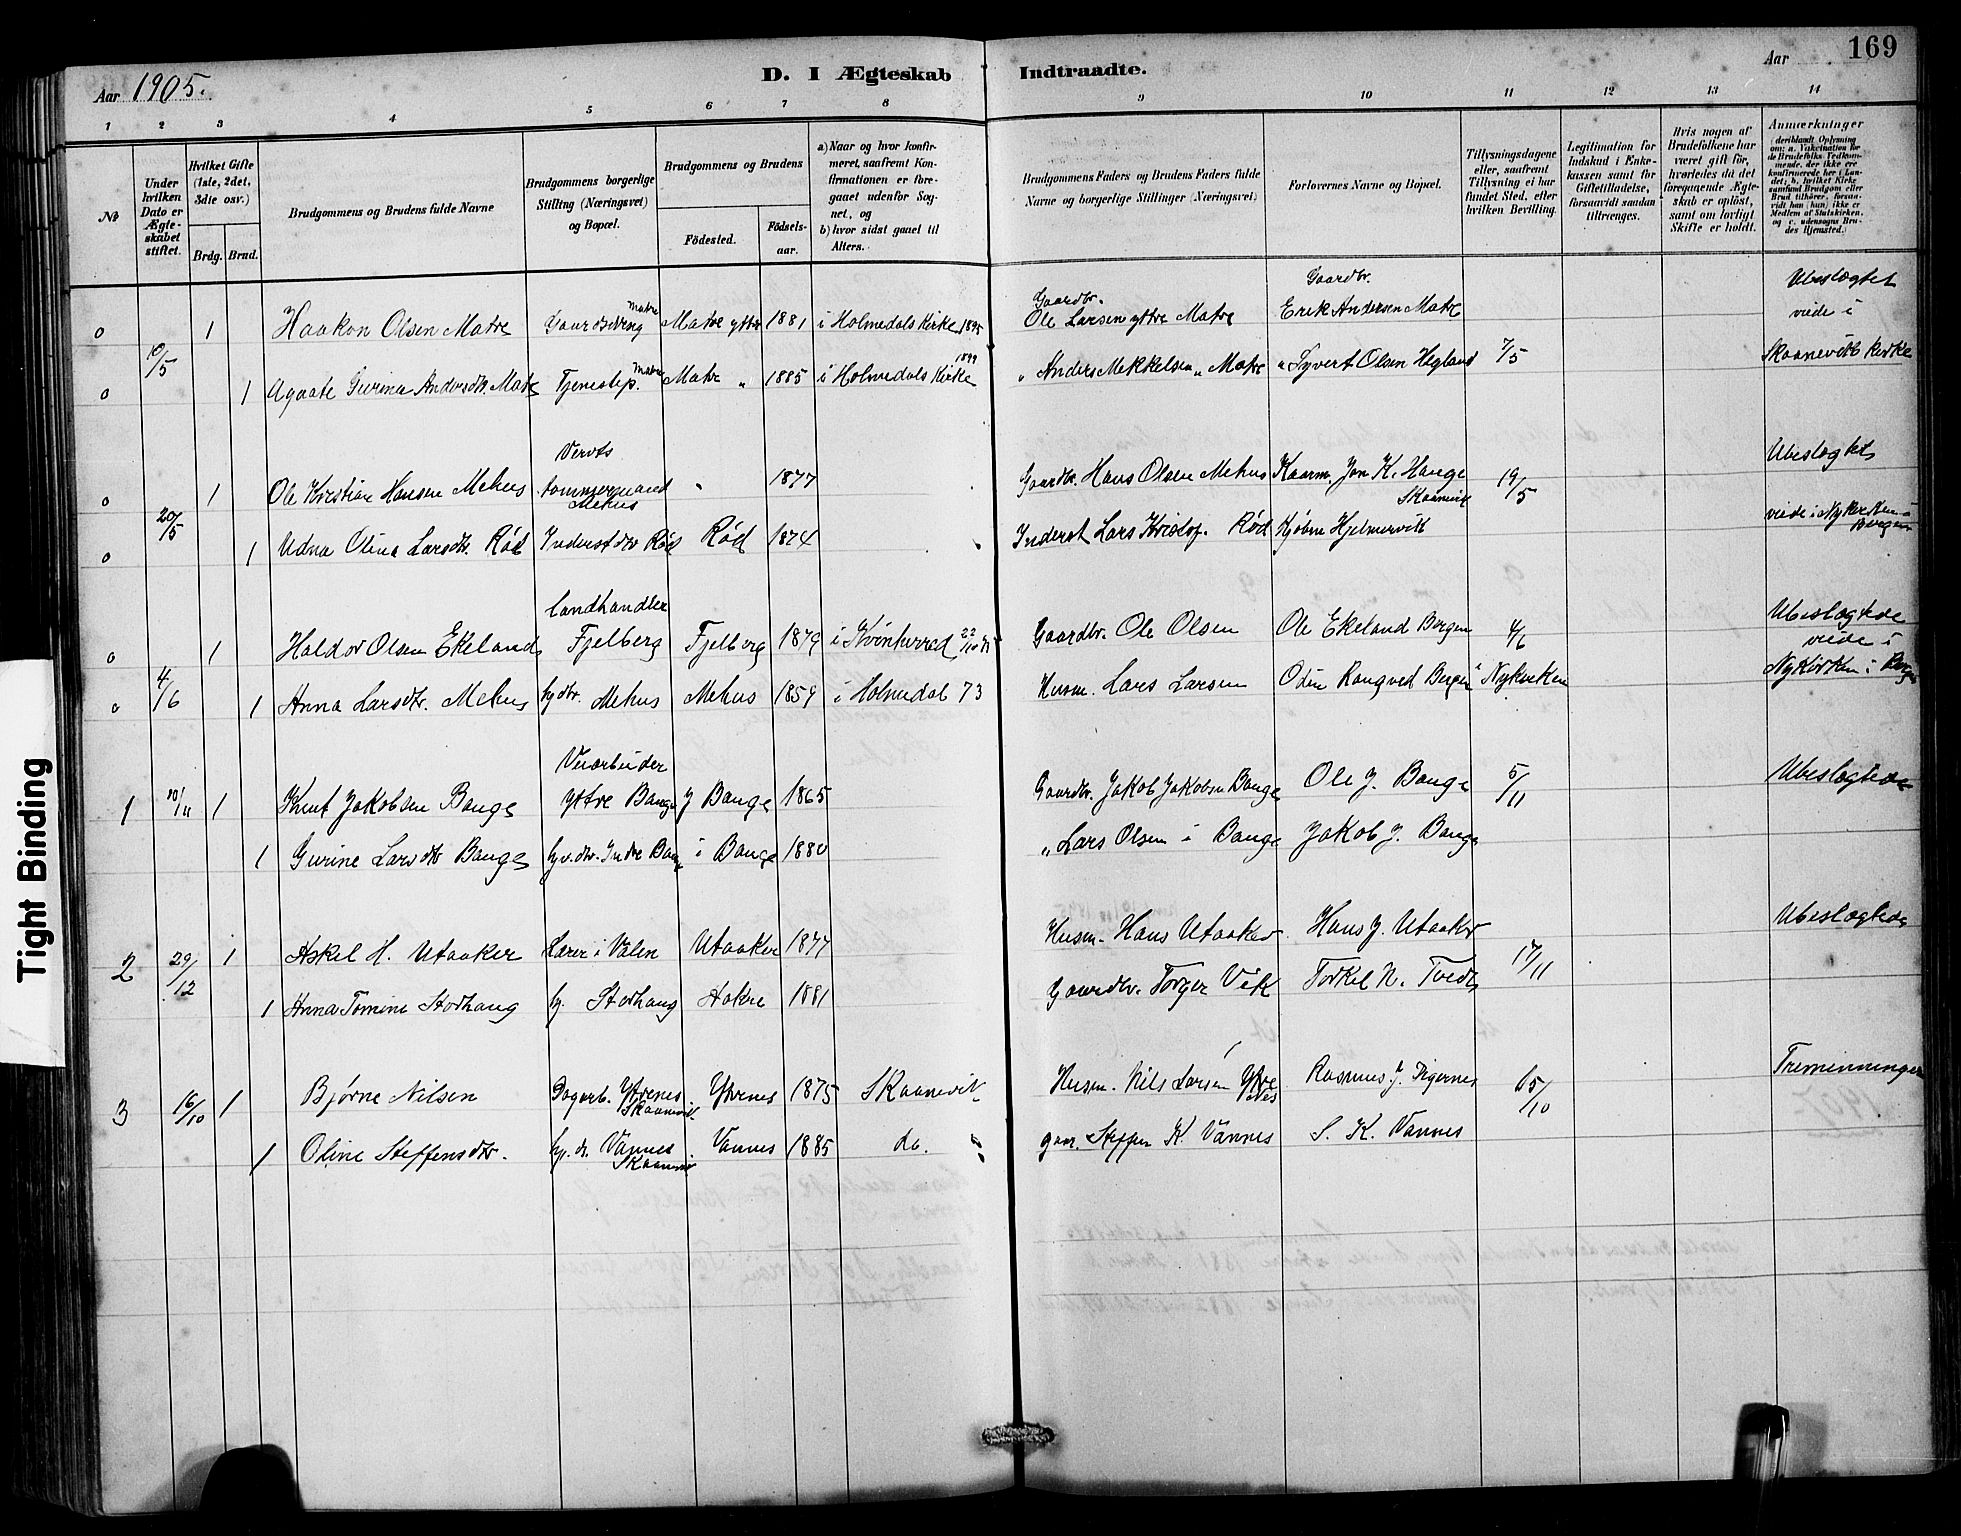 Aar 1905.
D. I Ægteskab Indtraadte.
Aar
169
1 2 3 4 5 6 7 8 9 10 11 12 13 14
№
Under hvilken Dato er Ægteskabet stiftet.
Hvilket Gifte (1ste, 2det, 3die osv.)
Brdg. Brud.
Brudgommens og Brudens fulde Navne
Brudgommens borgerlige Stilling (Næringsvei) og Bopæl.
Brudgommens og Brudens
Födested. Födselsaar.
a) Naar og hvor konfirmeret, saafremt Konfirmationen er foregaaet udenfor Sognet, og
b) hvor sidst gaaet til Alters.
Brudgommens Faders og Brudens Faders fulde Navne og borgerlige Stillinger (Næringsvei)
Forlovernes Navne og Bopæl.
Tillysningsdagene eller, saafremt Tillysning ei har fundet Sted, efter hvilken Bevilling.
Legitimation for Indskud i Enkekassen samt for Giftetilladelse, forsaavidt saadan tiltrænges.
Hvis nogen af Brudefolkene har været gift för, hvorledes da det foregaaende Ægteskab er oplöst, samt om lovligt Skifte er holdt.
Anmærkninger
0 10/5 1 Haakon Olsen Matre Gaardsdreng Matre Matre ytre 1881 i Holmedals Kirke 1895 Gaardbr. Ole Larsen ytre Matre Gaardbr. Erik Andersen Matre 7/5 Ubeslægtet viede i
0 1 Agaate Gurina Andersdtr. Matre Tjenestep. Matre Matre " 1885 i Holmedals Kirke 1899 " Anders Mikkelsen " Matre " Tyvert Olsen Hegland Skaanevik kirke
0 20/5 1 Ole Kristian Hansen Mehus Mehus " 1877 Gaardbr. Hans Olsen Mehus Kaarm. Jon K. Hauge Skaanevik 19/5 Ubeslægtet
0 1 Udna Olina Larsdtr. Rød Inderstdtr Rød Rød 1874 Inderst Lars Kristof. Rød Kjøbm Hjelmervik viede i Nykirken i Bergen
0 4/6 1 Haldor Olsen Ekeland Landhandler Fjelberg Fjelberg 1879 i Kvinherred 22/10 Gaardbr. Ole Olsen Ole Ekeland Bergen 4/6 Ubeslægtede viede i
0 1 Anna Larsdtr. Mehus Mehus Mehus 1859 i Holmedal 73 Husm. Lars Larsen Odin Rongved Bergen i Nykirken Nykirken i Bergen
1 10/11 1 Knut Jakobsen Bauge Veiarbeider Ytre Bauge Y Bauge 1865 Gaardbr. Jakob Jakobsen Bauge Ole J. Bauge 5/11 Ubeslægtede
1 Gurine Larsdtr Bauge Gv.dtr. Indre Bauge i Bauge 1880 " Lars Olsen i Bauge Jakob J. Bauge
2 29/12 1 Askel H. Utaaker Lærer i Valen Utaaker 1877 Husm. Hans Utaaker Hans J. Utaaker 17/11 Ubeslægtede
1 Anna Tomine Storhaug Storhaug Aakre 1881 Gaardbr. Torger Vik Torkel N. Tvedt
3 16/10 1 Bjørne Nilsen Dagarb. Ytrenes Skaanevik Ytrenes 1875 Skaanevik Husm. Nils Larsen Ytrenes Rasmus J. Tigernes 15/10 Tremenninger
1 Oline Steffensdtr. Vannes Skaanevik Vannes 1885 do. Steffen K. Vannes S. K. Vannes
Tight Binding